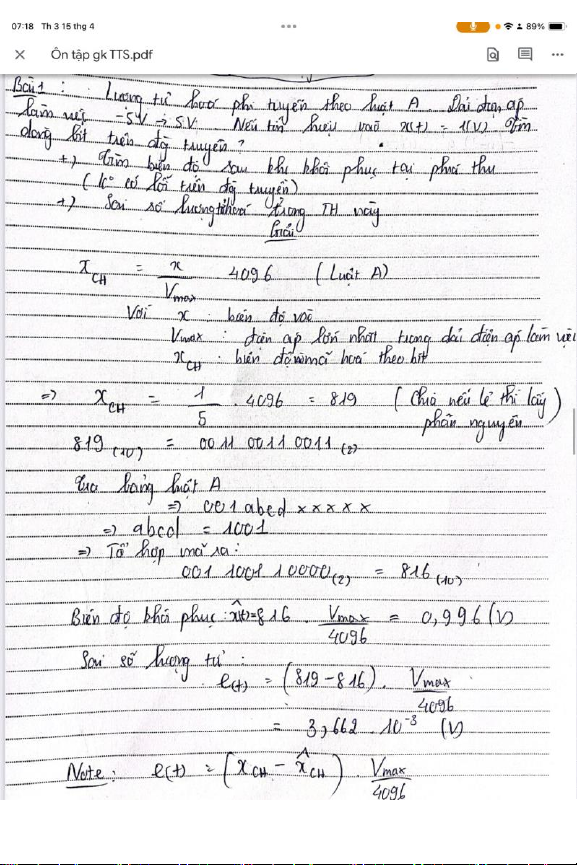 07:18 Th 3 15 thg 4
89%
Ôn tập gk TTS.pdf
Bài 1 : Lượng tử hoá phi tuyến theo luật A. Dải điện áp
làm việc -5V → 5V. Nếu tín hiệu vào x(t) = 1(V). Tìm
dòng bit trên độ truyền?
+) Tìm biên độ sau khi khôi phục tại phía thu
( K° có lỗi trên độ truyền)
+) Sai số lượng tử hoá trong TH này
Giải
x_CH = x / Vmax . 4096 ( Luật A)
Với x : biên độ vào
Vmax : điện áp lớn nhất trong dải điện áp làm việc
x_CH : biên độ mã hoá theo bit
=> x_CH = 1 / 5 . 4096 = 819 ( Chia nếu lẻ thì lấy
phần nguyên )
819 (10) = 0011 0011 0011 (2)
Tra bảng luật A
=> 001 abcd x x x x x
=> abcd = 1001
=> Tổ hợp mã ra:
001 1001 10000 (2) = 816 (10)
Biên độ khôi phục: x̂(t) = 816 . Vmax / 4096 = 0,996 (V)
Sai số lượng tử :
e(t) = (819 - 816) . Vmax / 4096
= 3,662 . 10⁻³ (V)
Note : e(t) = (x_CH - x̂_CH) . Vmax / 4096